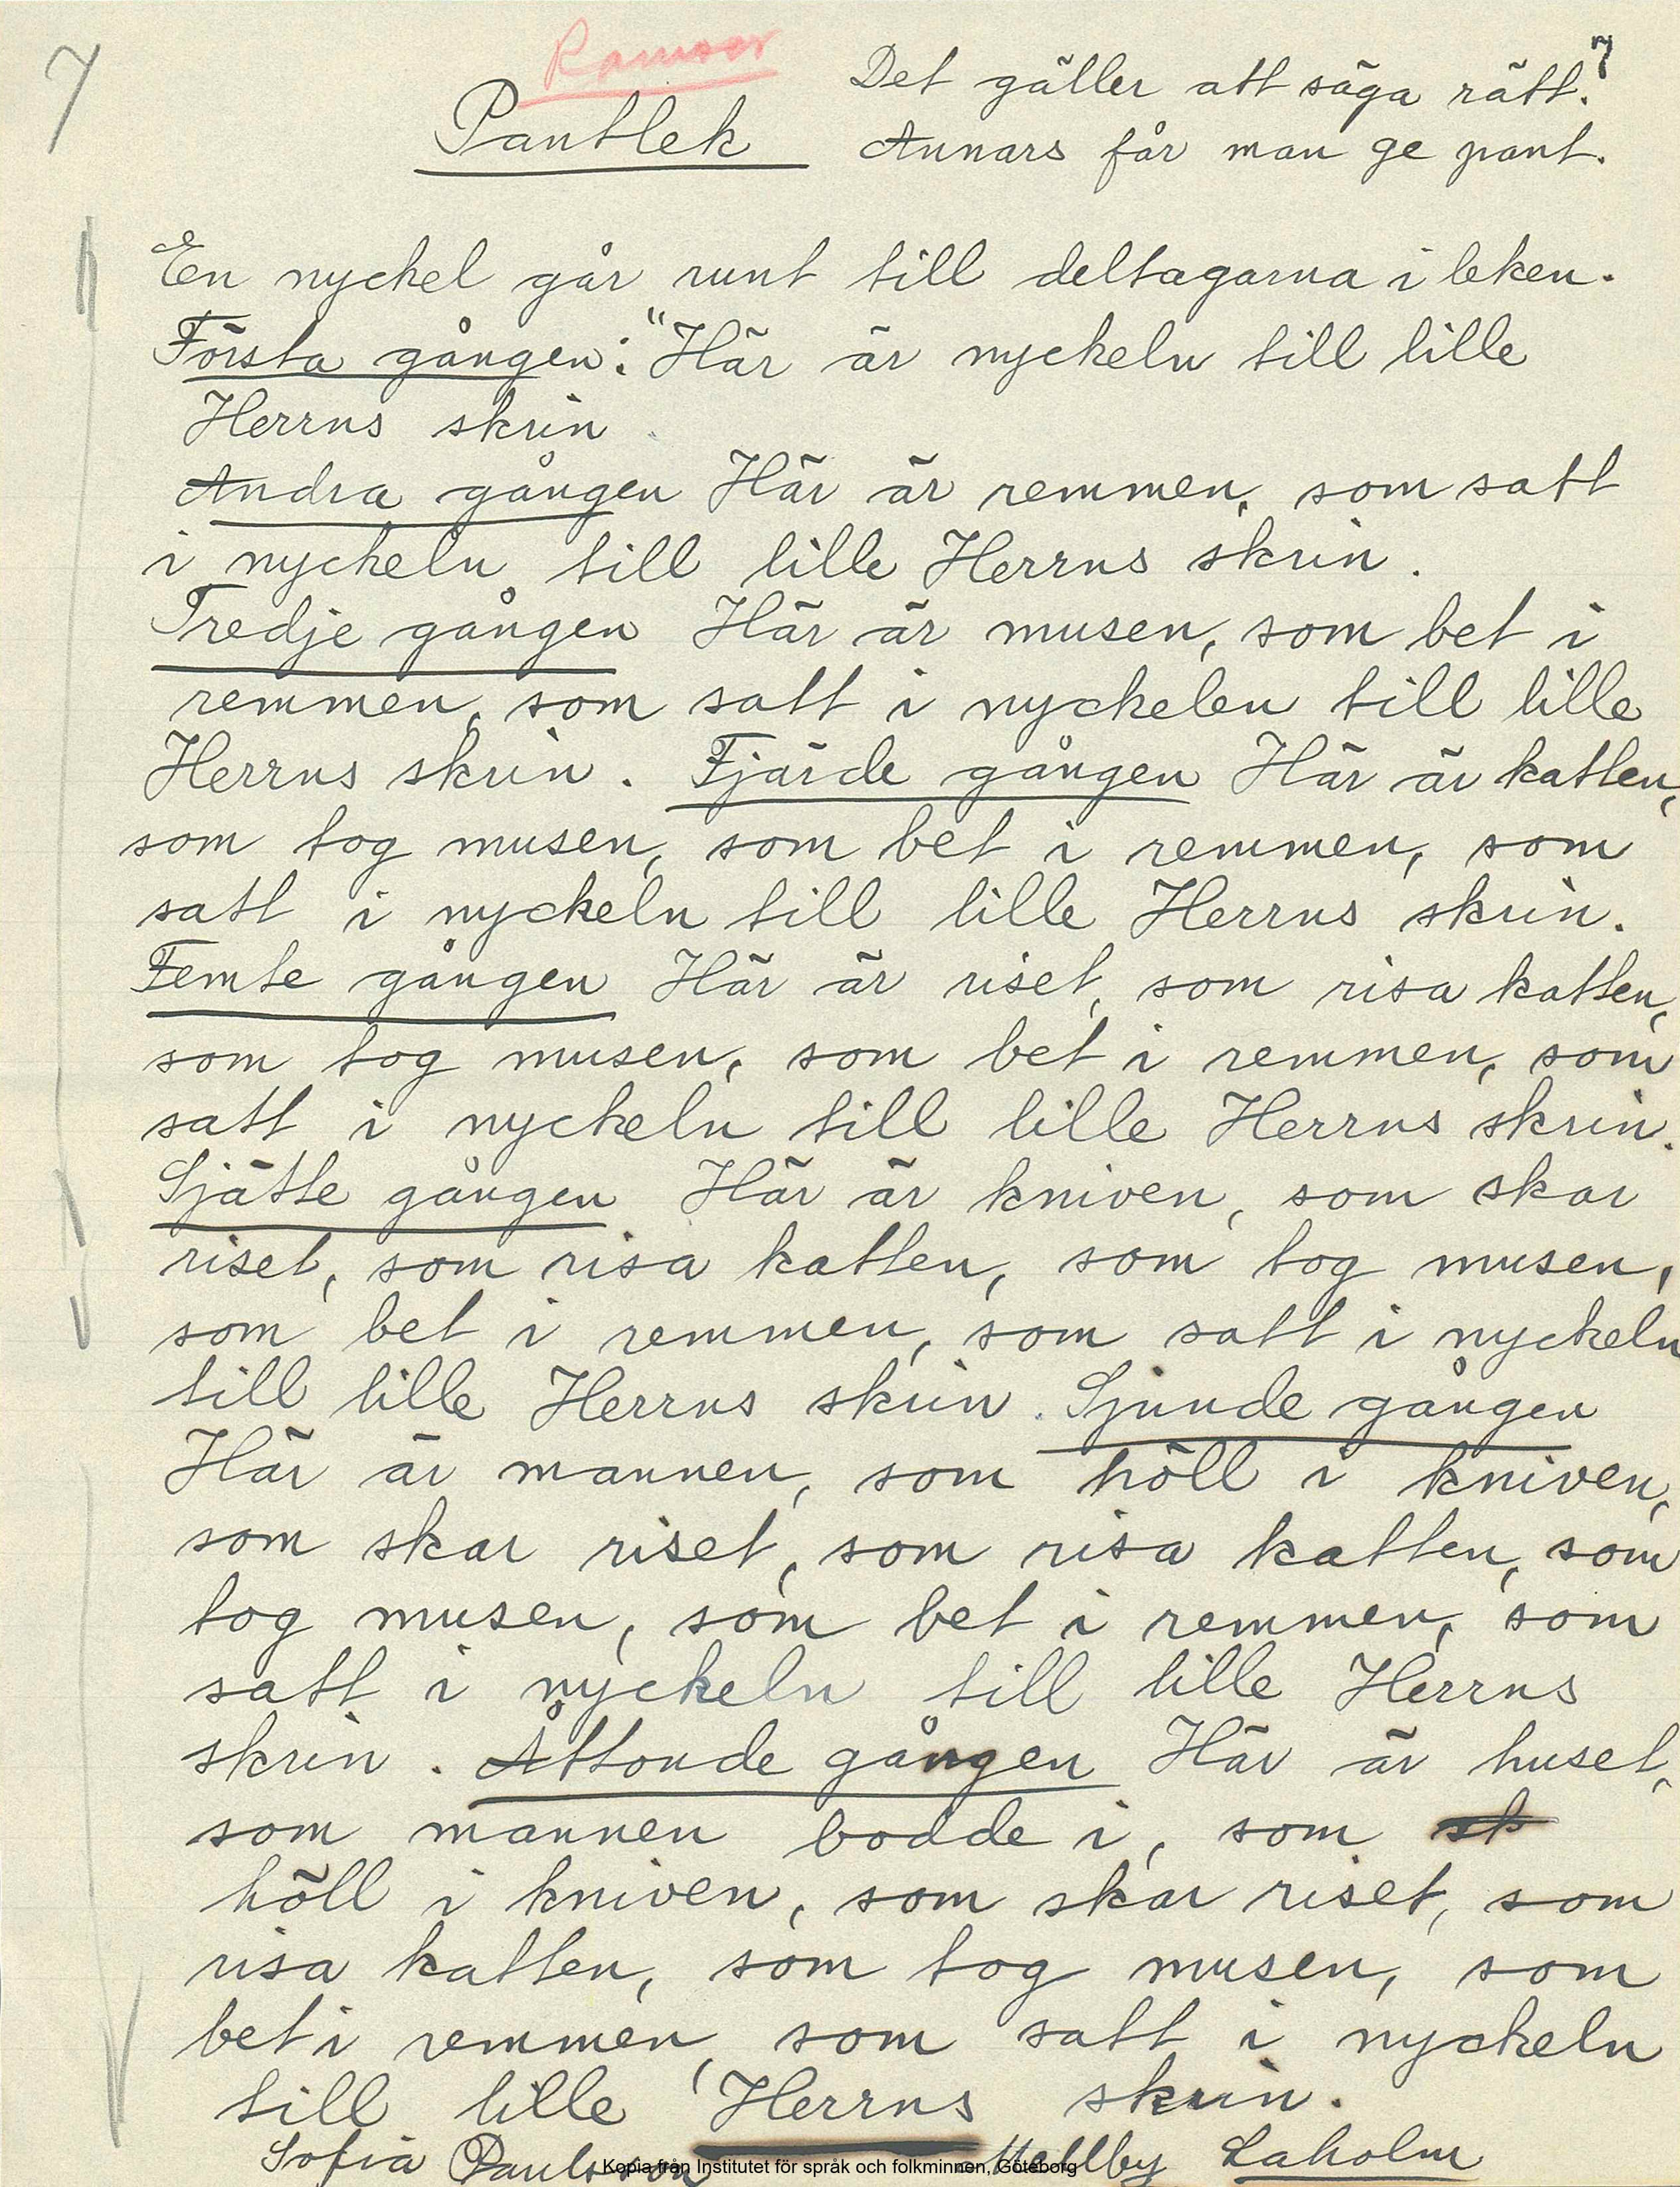 7
Ramsor
7
Pantlek
Det gäller att säga rätt.
Annars får man ge pant.
En nyckel går runt till deltagarna i leken.
Första gången: "Här är nyckeln till lille
Herrns skrin
Andra gången Här är remmen, som satt
i nyckeln till lille Herrns skrin.
Tredje gången Här är musen, som bet i
remmen, som satt i nyckelen till lille
Herrns skrin. Fjärde gången Här är katten,
som tog musen, som bet i remmen, som
satt i nyckeln till lille Herrns skrin.
Femte gången Här är riset, som risa katten,
som tog musen, som bet i remmen, som
satt i nyckeln till lille Herrns skrin.
Sjätte gången Här är kniven, som skar
riset, som risa katten, som tog musen,
som bet i remmen, som satt i nyckeln
till lille Herrns skrin. Sjunde gången
Här är mannen, som höll i kniven,
som skar riset, som risa katten, som
tog musen, som bet i remmen, som
satt i nyckeln till lille Herrns
skrin. Åttonde gången Här är huset,
som mannen bodde i, som
höll i kniven, som skar riset, som
risa katten, som tog musen, som
bet i remmen, som satt i nyckeln
till lille Herrns skrin.
Sofia Paulsson Mellby Laholm
Kopia från Institutet för språk och folkminnen, Göteborg